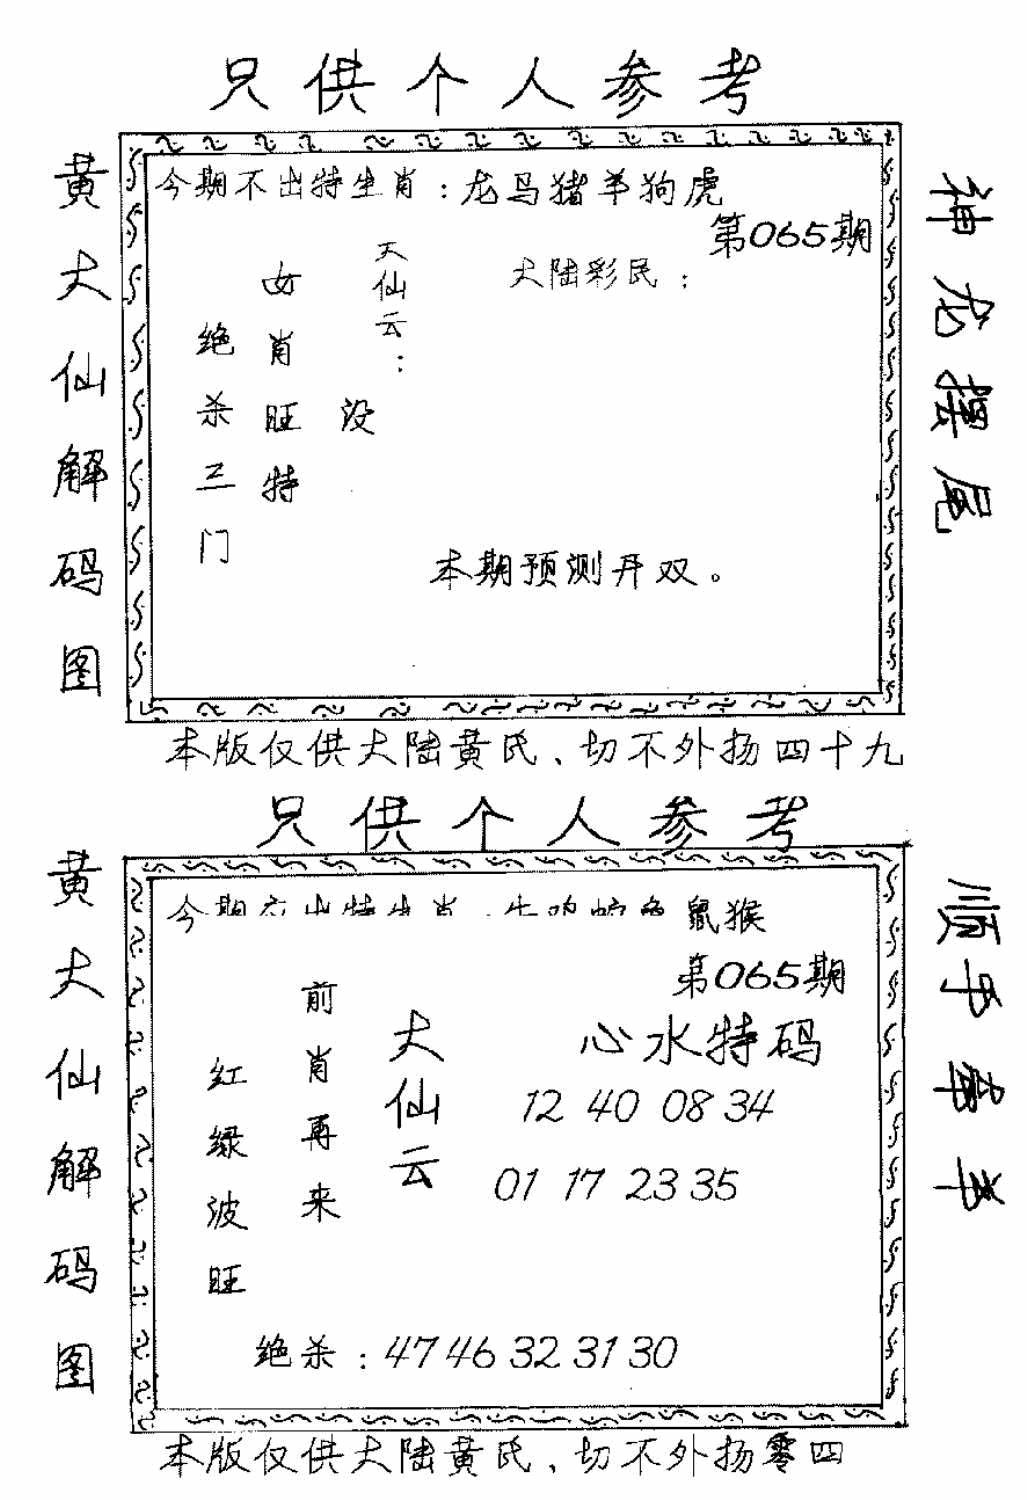 只供个人参考
黄大仙解码图
今期不出特生肖：龙马猪羊狗虎
第065期
大陆彩民：
天仙云：
没
女肖旺特
绝杀三门
本期预测开双。
神龙摆尾
本版仅供大陆黄氏、切不外扬四十九
只供个人参考
黄大仙解码图
鼠猴
第065期
心水特码
12 40 08 34
01 17 23 35
大仙云
前肖再来
红绿波旺
绝杀：47 46 32 31 30
顺手牵羊
本版仅供大陆黄氏、切不外扬零四